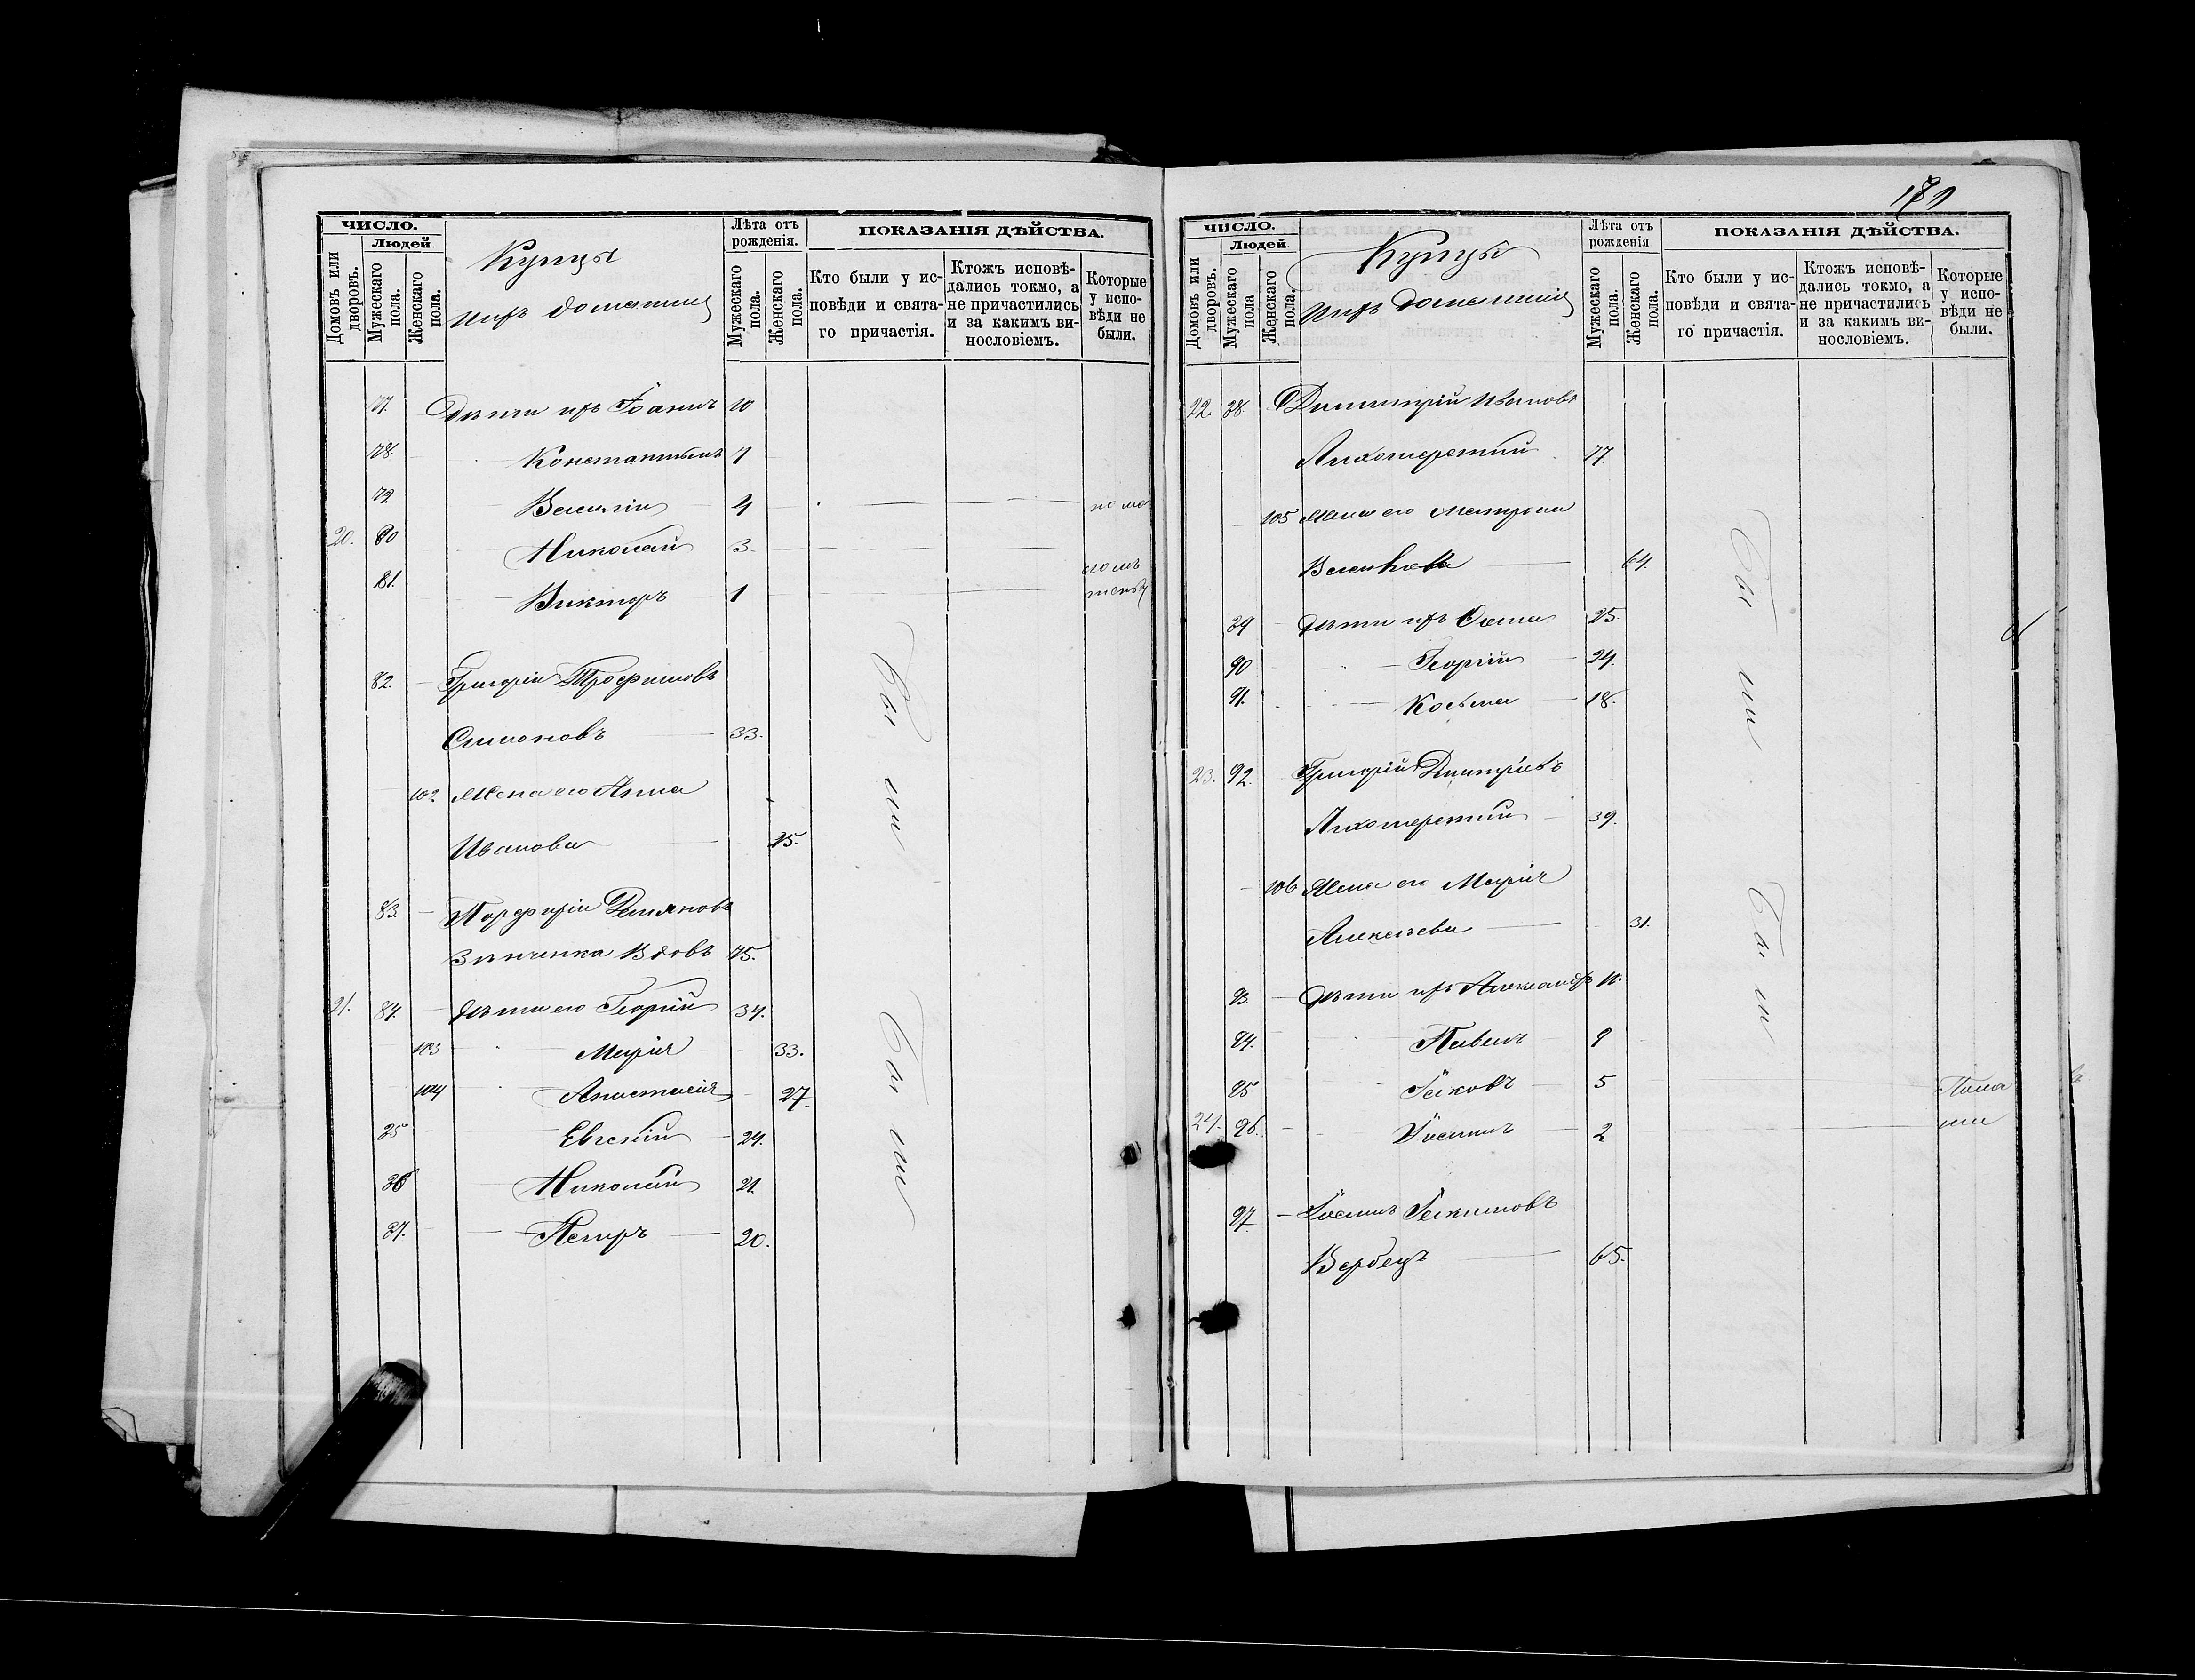 171
ЧИСЛО.
Людей.
Домовъ или дворовъ.
Мужескаго пола.
Женскаго пола.
Купцы
ихъ домашніи
Лѣта отъ рожденія.
Мужескаго пола.
Женскаго пола.
ПОКАЗАНІЯ ДѢЙСТВА.
Кто были у исповѣди и святаго причастія.
Ктожъ исповѣдались токмо, а не причастились и за какимъ винословіемъ.
Которые у исповѣди не были.
77. Дѣти ихъ Іоаннъ 10
78. Константинъ 7
79 Василій 4
20. 80 Николай 3.
81. Викторъ 1
82. Григорій Трофимовъ
Симоновъ 33.
102. Жена его Анна
Иванова 25.
83. Порфирій Демяновъ
Зінченка Вдовъ 75.
21. 84. Дѣти его Георгій 34.
103 Марія 33.
104 Анастасія 27.
85 Евгеній 24.
86 Николай 21.
87. Петръ 20.
Бы ли
Бы ли
ЧИСЛО.
Людей.
Домовъ или дворовъ.
Мужескаго пола.
Женскаго пола.
Купцы
ихъ домашніи
Лѣта отъ рожденія
Мужескаго пола.
Женскаго пола.
ПОКАЗАНІЯ ДѢЙСТВА.
Кто были у исповѣди и святаго причастія.
Ктожъ исповѣдались токмо, а не причастились и за какимъ винословіемъ.
Которые у исповѣди не были.
22. 88. Димитрій Ивановъ
Лихошерстий 77.
105 Жена его Матрона
64.
89 Дѣти ихъ Ѳома 25.
90 Георгій 24.
91. Косьма 18.
23. 92. Григорій Дмитріевъ
Лихошерстий 39.
106 Жена его Марія
Алексѣева 31.
93. Дѣти ихъ Александръ 11.
94. Павелъ 9
95 Іаковъ 5
24. 96. Іоаннъ 2
97. Іоаннъ Іакимовъ
Вербецъ 65.
Бы ли
Бы ли